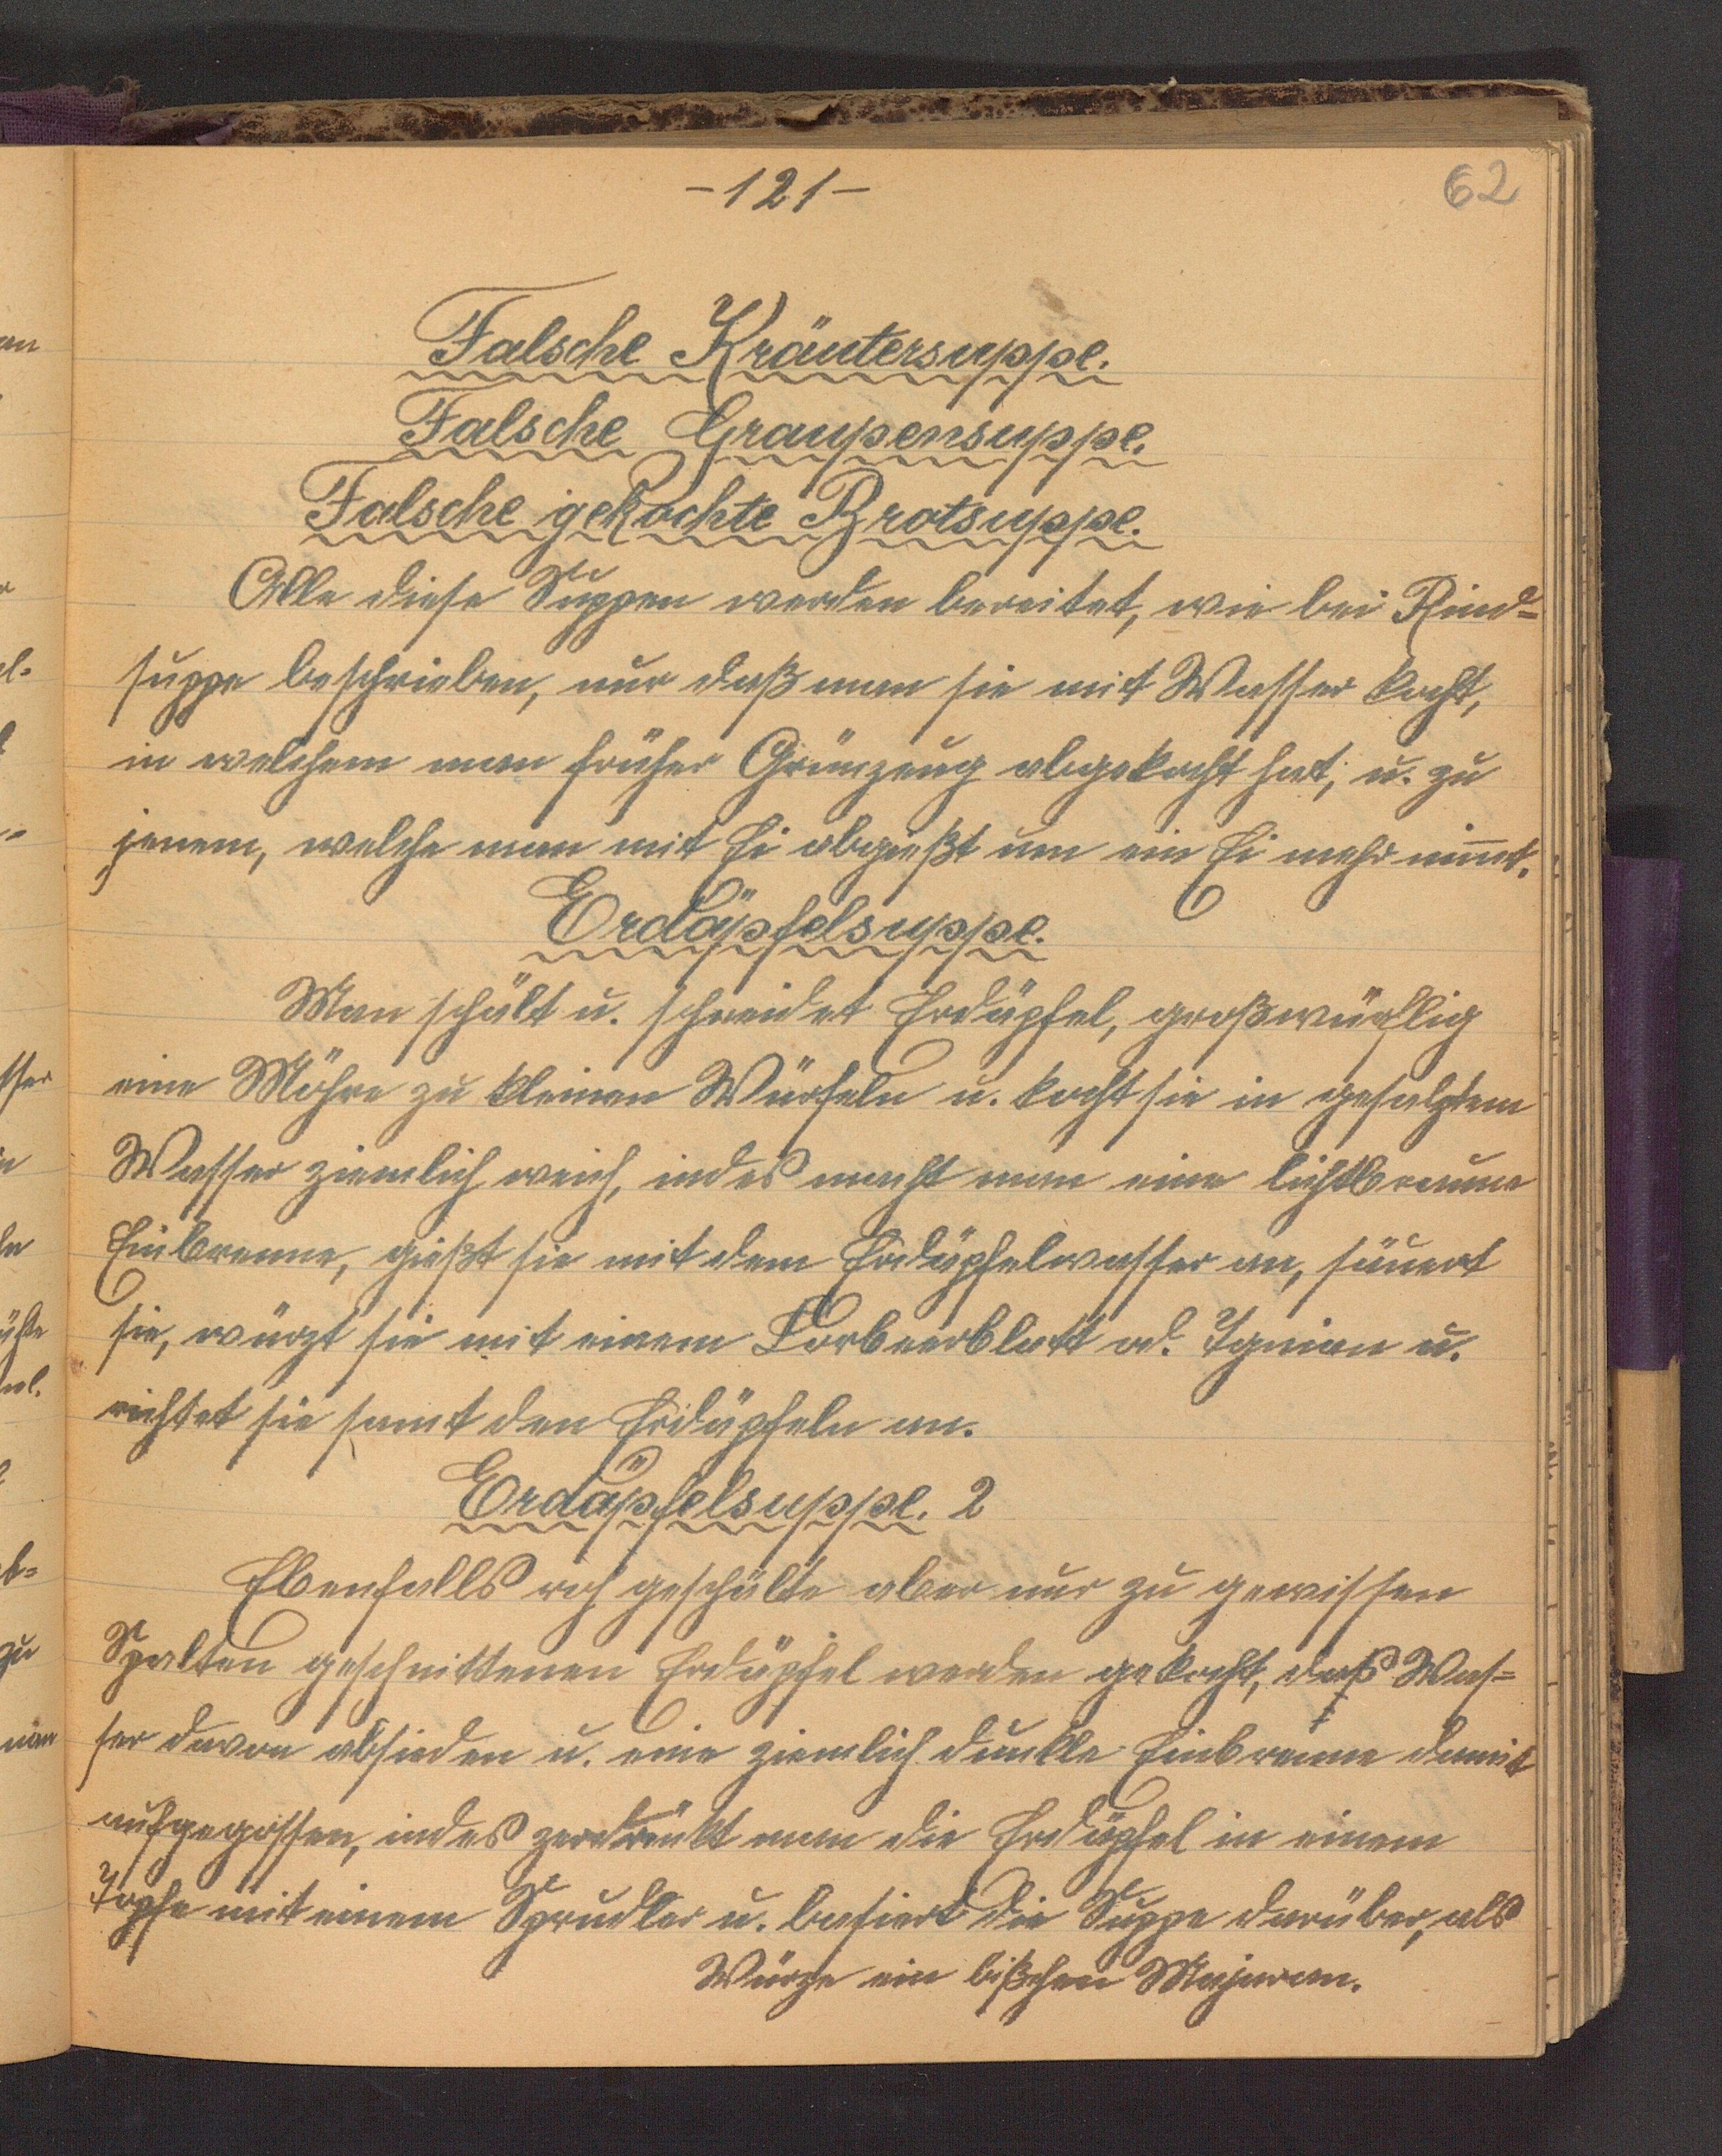 -121-
62
Falsche Kräutersuppe.
Falsche Graupensuppe.
Falsche gekochte Brotsuppe.
Alle diese Suppen werden bereitet, wie bei Rind-
suppe beschrieben, nur daß man sie mit Wasser kocht,
in welchem man früher Grünzeug abgekocht hat; u. zu
jenem, welche man mit Ei abgießt um ein Ei mehr nimt.
Erdäpfelsuppe.
Man schält u. schneidet Erdäpfel, großwürflig
eine Möhre zu kleinen Würfeln u. kocht sie in gesalztem
Wasser ziemlich weich, indes macht man eine lichtbraune
Einbrenne, gießt sie mit dem Erdäpfelwasser an, säuert
sie, würzt sie mit einem Lorbeerblatt od. u.
richtet sie samt den Erdäpfeln an.
Erdäpfelsuppe. 2
Ebenfalls roh geschälte aber nur zu gewissen
Spalten geschnittenen Erdäpfel werden gekocht, das Was-
ser davon absieden u. eine ziemlich dunkle Einbrenne damit
aufgegossen, indes zerdrückt man die Erdäpfel in einem
Topfe mit einem Sprudler u. die Suppe darüber, als
Würze ein bißchen Majoran.